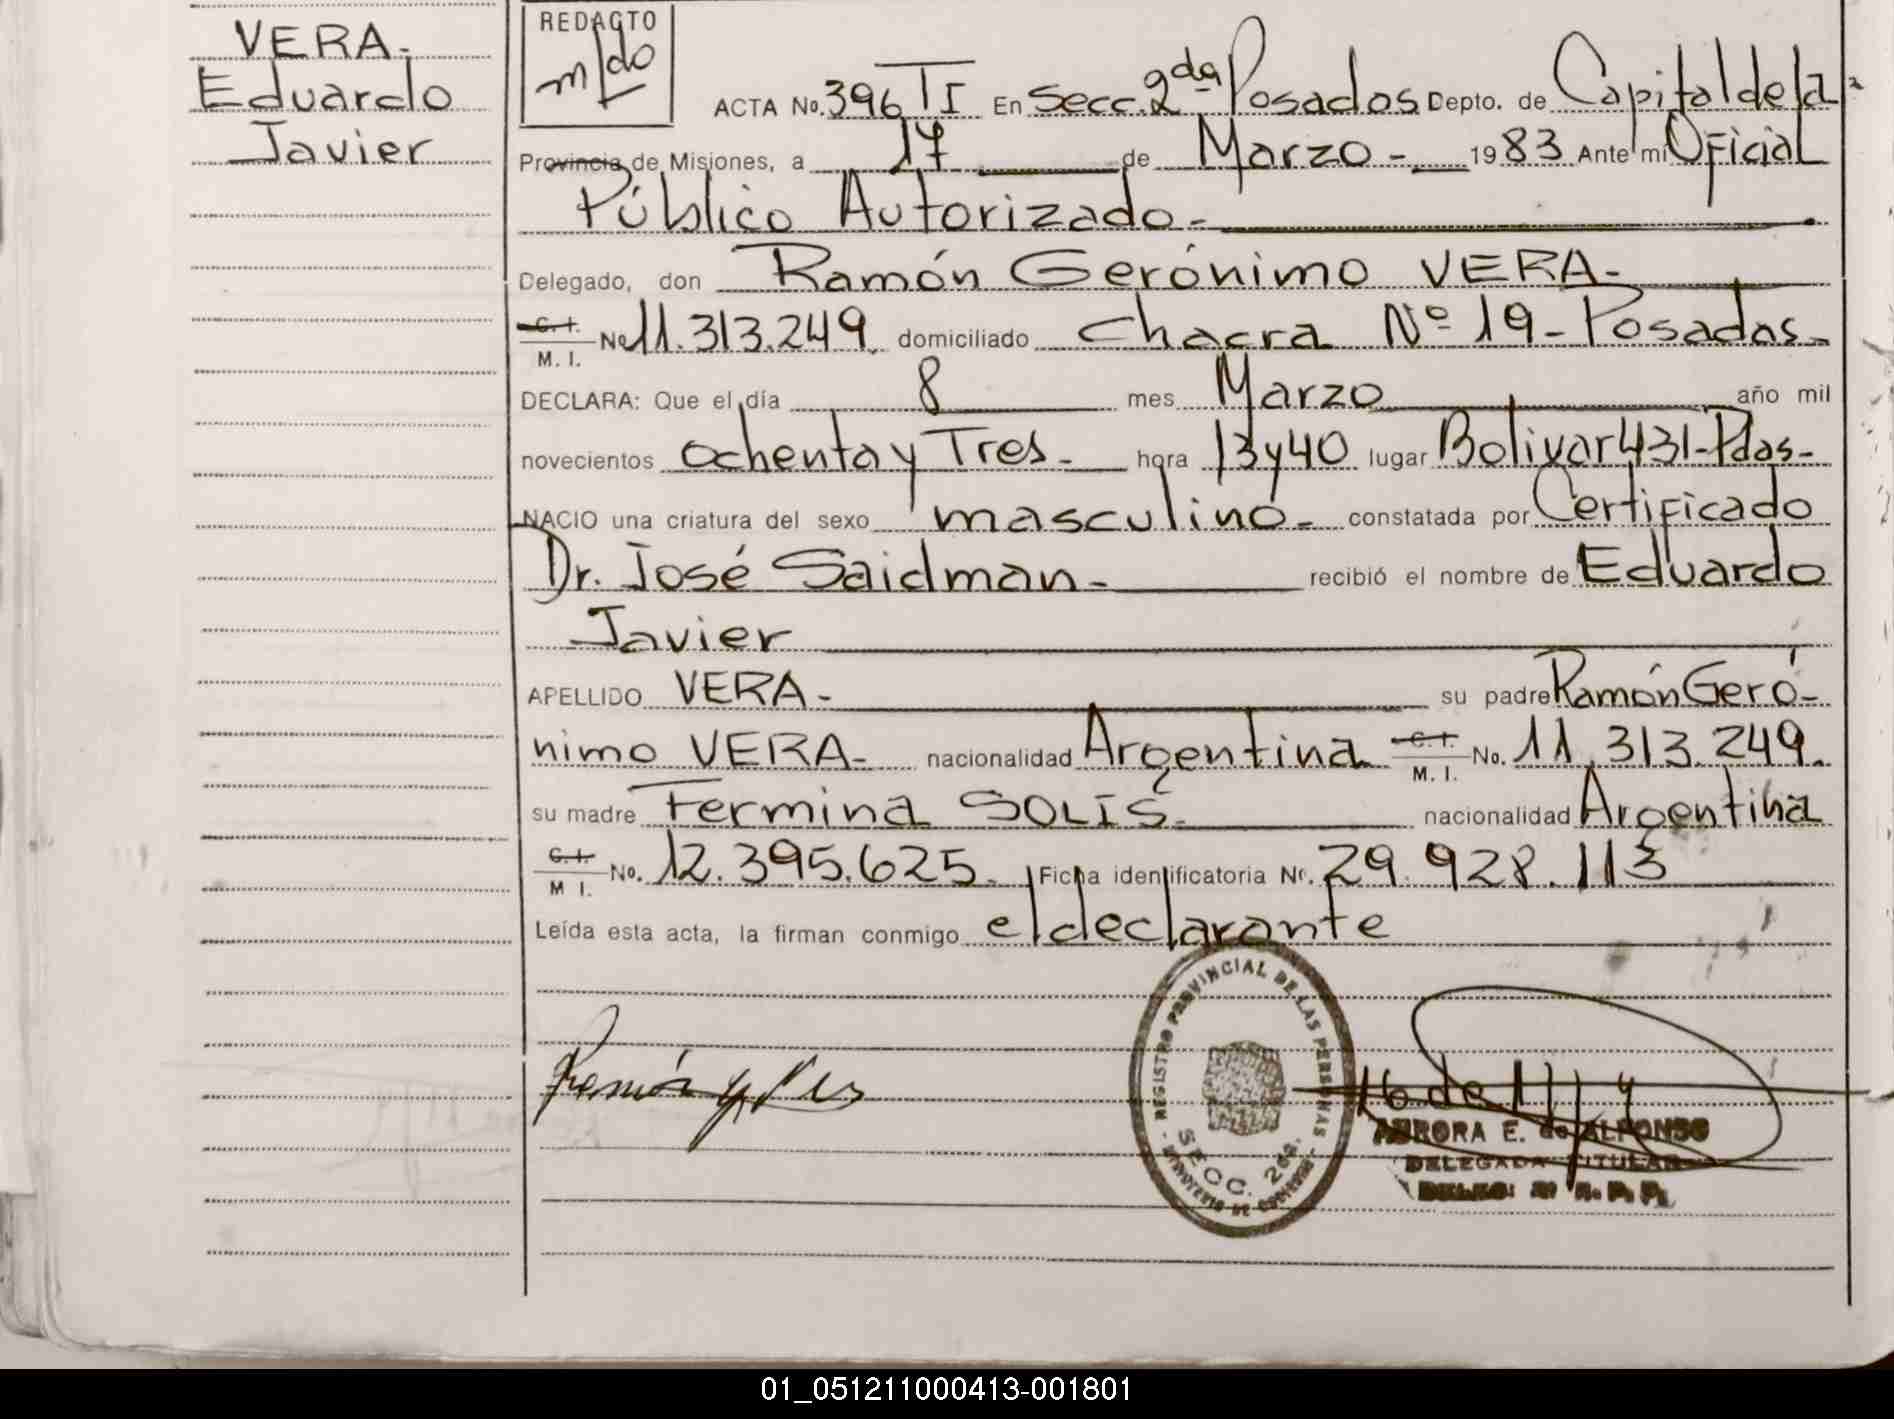 VERA-
Eduardo
Javier
REDACTO
ACTA No. 396 TI En Secc. 2da Posadas Depto. de Capital de la
Provincia de Misiones, a 17 de Marzo - 1983 Ante mi Oficial
Público Autorizado-
Delegado, don Ramón Gerónimo VERA-
C. I. M. I. No 11.313.249 domiciliado Chacra Nº 19 - Posadas-
DECLARA: Que el día 8 mes Marzo año mil
novecientos ochenta y Tres- hora 13 y 40 lugar Bolivar 431-Pdas-
NACIO una criatura del sexo masculino- constatada por Certificado
Dr. José Saidman- recibió el nombre de Eduardo
Javier
APELLIDO VERA- su padre Ramón Geró-
nimo VERA- nacionalidad Argentina C. I. M. I. No. 11.313.249.
su madre Fermina SOLÍS- nacionalidad Argentina
C. I. M I. No. 12.395.625. Ficha identificatoria Nr. 29.928.113
Leída esta acta, la firman conmigo el declarante
REGISTRO PROVINCIAL DE LAS PERSONAS
SECC. 2da.
MINISTERIO DE GOBIERNO
AURORA E. de ALFONSO
DELEGADA TITULAR
01_051211000413-001801